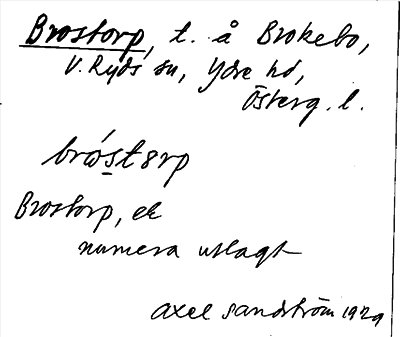 Brostorp, t. å Brokebo,
V. Ryds sn, Ydre hd,
Österg. l.
bròstorp
Brostorp, ek
numera utlagt
Axel Sandström 1929